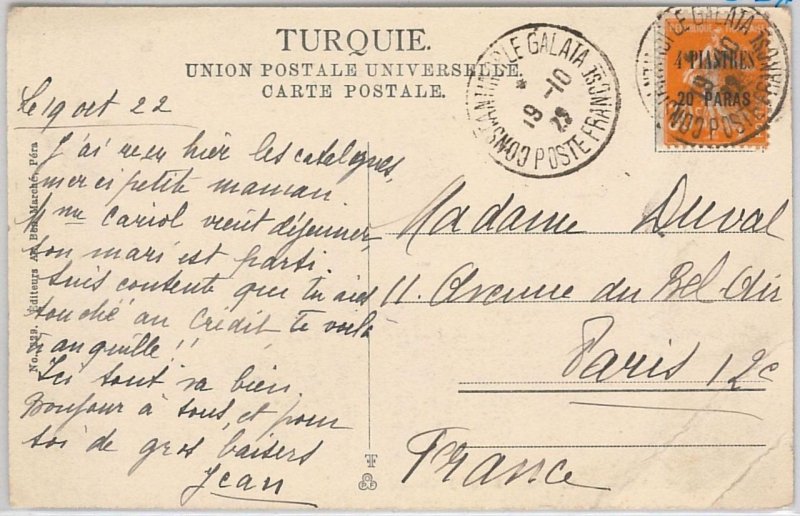 TURQUIE.
UNION POSTALE UNIVERSELLE.
CARTE POSTALE.
CONSTANTINOPLE GALATA
* 19 -10 22
POSTE FRANÇSE
4 PIASTRES
20 PARAS
Le 19 oct 22
J'ai reçu hier les catalogues,
merci petite maman
Mme Cariol vient déjeuner,
son mari est parti.
Suis contente que tu aies
touché au Crédit te voilà
tranquille !!
Ici tout va bien
Bonjour à tous, et pour
toi de gros baisers
Jean
Madame Duval
11. Avenue du Bel-Air
Paris 12e
France
Editeurs Au Bon Marché, Péra